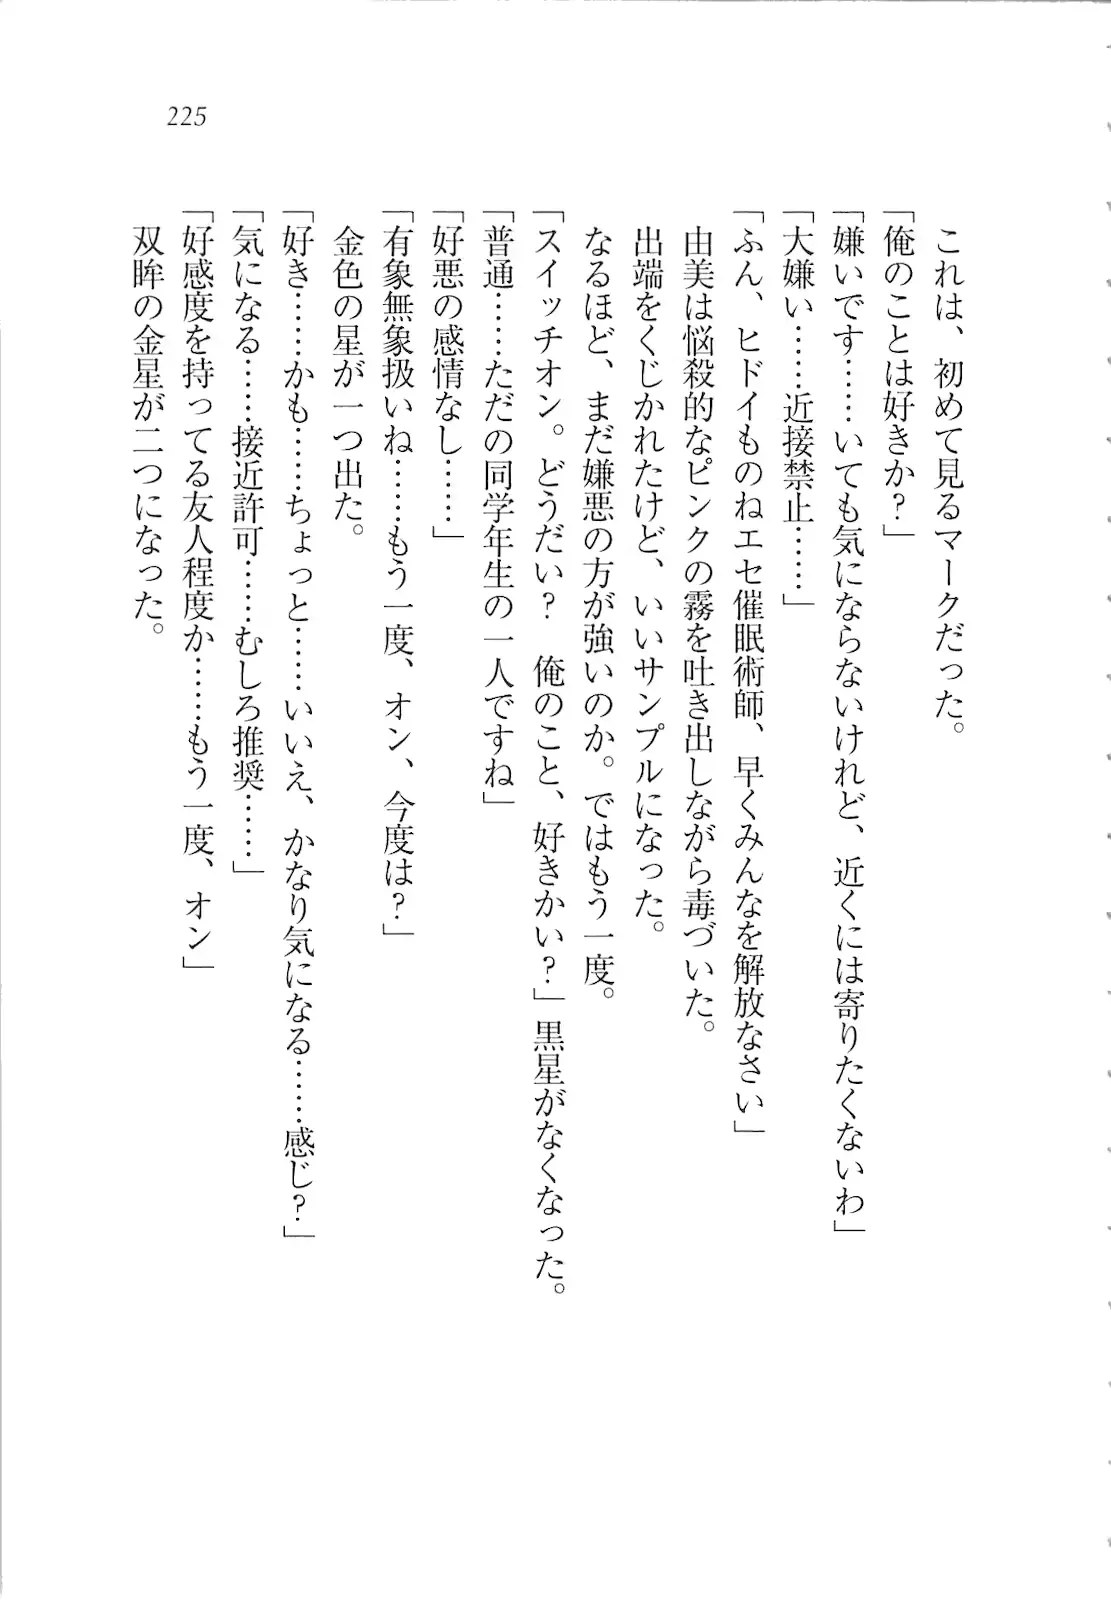 225
これは、初めて見るマークだった。
「俺のことは好きか?」
「嫌いです……いても気にならないけれど、近くには寄りたくないわ」
「大嫌い……近接禁止……」
「ふん、ヒドイものねエセ催眠術師、早くみんなを解放なさい」
由美は悩殺的なピンクの霧を吐き出しながら毒づいた。
出端をくじかれたけど、いいサンプルになった。
なるほど、まだ嫌悪の方が強いのか。ではもう一度。
「スイッチオン。どうだい? 俺のこと、好きかい?」黒星がなくなった。
「普通……ただの同学年生の一人ですね」
「好悪の感情なし……」
「有象無象扱いね……もう一度、オン、今度は?」
金色の星が一つ出た。
「好き……かも……ちょっと……いいえ、かなり気になる……感じ?」
「気になる……接近許可……むしろ推奨……」
「好感度を持ってる友人程度か……もう一度、オン」
双眸の金星が二つになった。